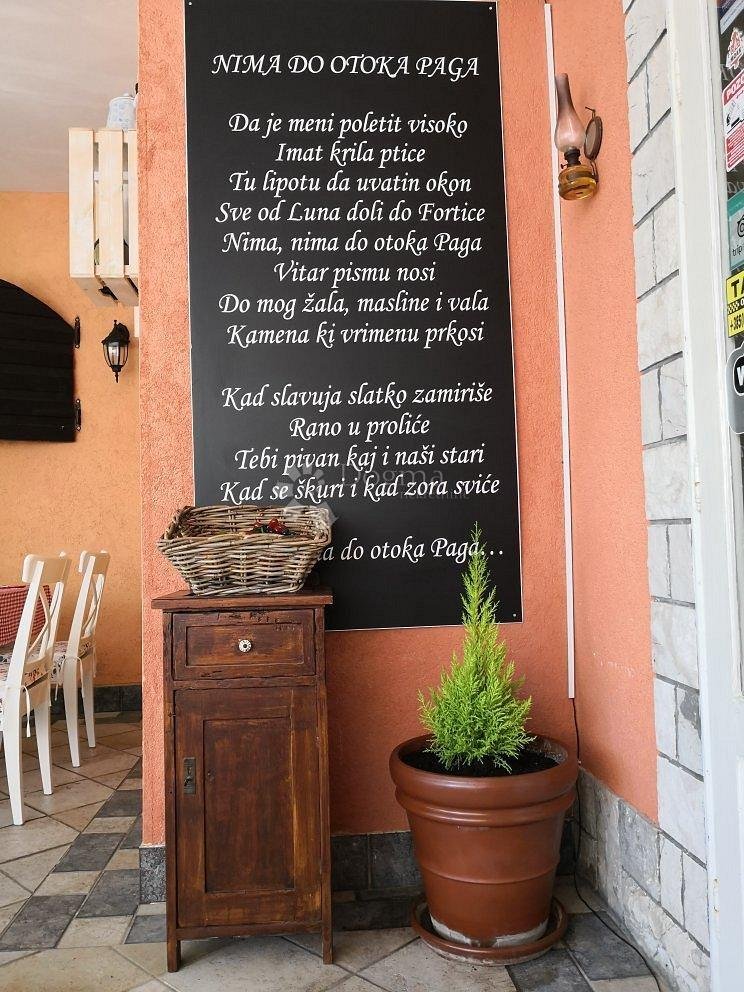 NIMA DO OTOKA PAGA
Da je meni poletit visoko
Imat krila ptice
Tu lipotu da uvatin okon
Sve od Luna doli do Fortice
Nima, nima do otoka Paga
Vitar pismu nosi
Do mog žala, masline i vala
Kamena ki vrimenu prkosi
Kad slavuja slatko zamiriše
Rano u proliće
Tebi pivan kaj i naši stari
Kad se škuri i kad zora sviće
do otoka Paga...
Dogma